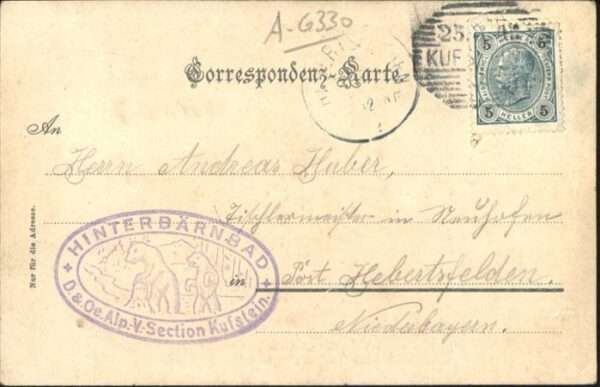 A-G330
Correspondenz-Karte.
25.
KUF
5 5
5 HELLER 5
An
Herrn Andreas Huber,
Tischlermeister in Neuhofen
in Post Hebertsfelden.
Niederbayern.
Nur für die Adresse.
HINTERBÄRNBAD
D.&Oe.Alp.-V.-Section Kufstein.